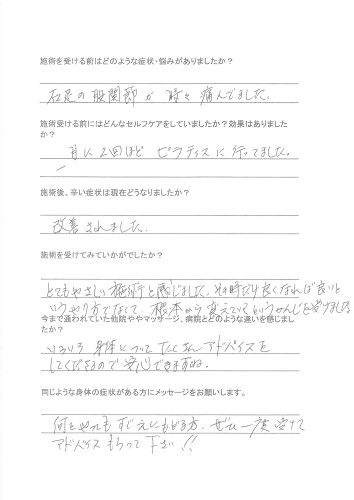 施術を受ける前はどのような症状・悩みがありましたか？
右足の股関節が時々痛んでました。
施術受ける前にはどんなセルフケアをしていましたか？効果はありました
か？
月に2回ほどピラティスに行ってました。
施術後、辛い症状は現在どうなりましたか？
改善されました。
施術を受けてみていかがでしたか？
とてもやさしい施術と感じました。その時だけ良くなれば良いと
いうやり方でなくて、根本から変えていくというかんじを受けました
今まで通われていた他院ややマッサージ、病院とどのような違いを感じまし
たか？
いろいろ身体についてたくさんアドバイスを
してくださるので安心できますね。
同じような身体の症状がある方にメッセージをお願いします。
何をやってもすぐ元にもどる方、ぜひ一度受けて
アドバイスもらって下さい!!